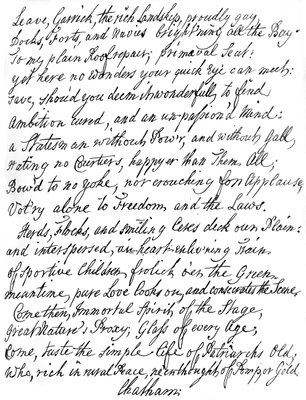 Leave, Garrick, the rich landskip, proudly gay,
Docks, Forts, and Navies bright'ning all the Bay:
To my plain Roof repair; primæval Seat:
yet here no wonders your quick Eye can meet:
save, shou'd you deem it wonderfull, to find
Ambition cured, and an unpassion'd Mind:
a Statesman without Pow'r, and without Gall,
Hating no Courtiers, happyer than Them All;
Bow'd to no yoke, nor crouching for Applause,
Vot'ry alone to Freedom, and the Laws.
Herds, Flocks, and smiling Ceres deck our Plain:
and interspersed, an heart-enliv'ning Train
of sportive Children, frolick o'er the Green
meantime, pure Love looks on, and consecrates the Scene.
Come then, Immortal Spirit of the Stage,
great Nature's Proxy, Glass of every Age;
Come, taste the simple Life of Patriarchs Old,
Who, rich in rural Peace, ne'er thought of Pomp, or Gold
Chatham: